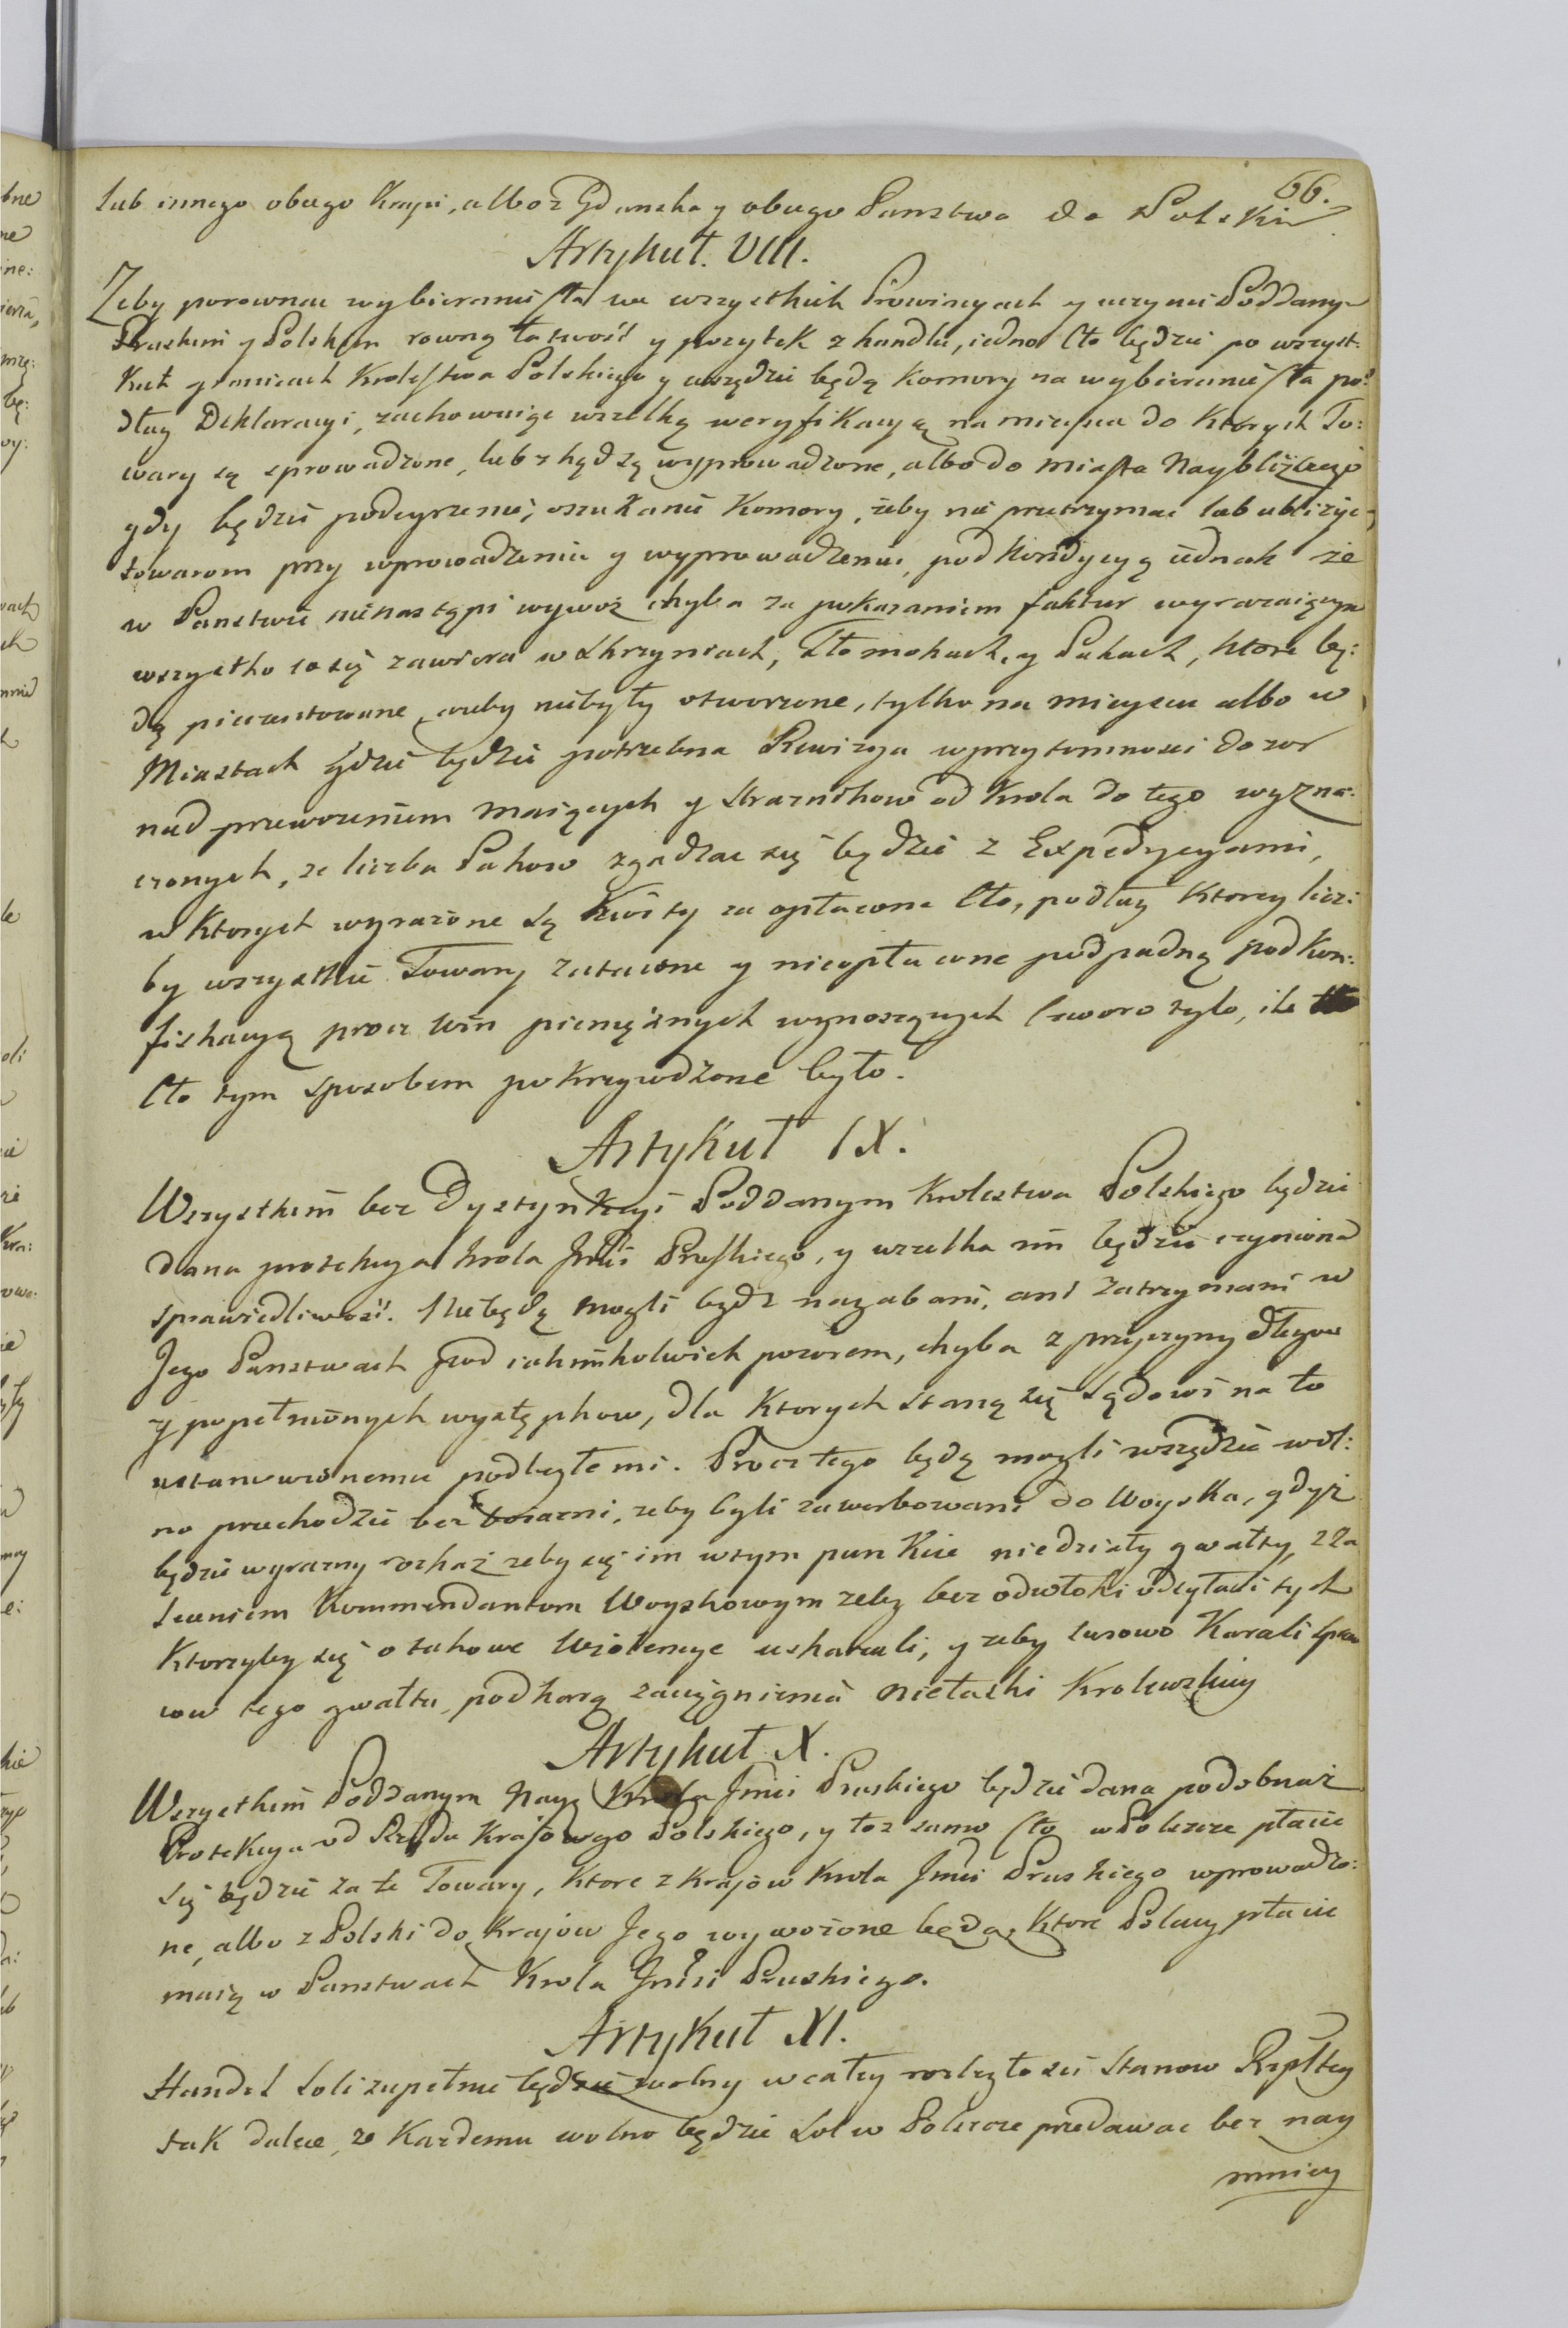 66.
lub innego obcego Kraju, albo z Gdanska y obcego Panstwa do Polski
Artykuł. VIII.
Zeby porownac wybieranie Cła we wszystkich Prowincyach y uczynic Poddanym
Pruskim y Polskim rowną łatwość y pozytek z handlu, iedno Cło będzie po wszyst:
kich granicach Krolestwa Polskiego y wszędzie będą Komory na wybieranie Cła po:
dług Deklaracyi, zachowuiąc wszelką weryfikacyą na mieysca do Których To:
wary są sprowadzone, lub zkąd są wyprowadzone, albo do miasta Naybliższego
gdy będzie podeyrzenie, oszukanie Komory, żeby nie przetrzymac lub ubliżyc
towarom przy wprowadzeniu y wyprowadzeniu, pod Kondycyą iednak że
w Panstwie nienastąpi wywoz chyba za pokazaniem faktur wyrazaiących
wszystko co się zawiera w Skrzyniach, Tłomokach, y Pakach, ktore bę:
dą pieczętowane, azeby niebyły otworzone, tylko na mieyscu albo w
Miastach gdzie będzie potrzebna Rewizya w przytomnosci dozor
nad przewozeniem maiących y Straznikow od Krola do tego wyzna:
czonych, ze liczba Pakow zgadzac się będzie z Expedycyami,
w Ktorych wyrażone są Kwity za opłacone Cło, podług Ktorey licz:
by wszystkie Towary zataione y nieopłacone podpadną pod Kon:
fiskacyą procz win pieniężnych wynoszących Czworo tyle, ile
Cło tym sposobem pokrzywdzone było.
Artykuł IX.
Wszystkim bez Dystynkcyi Poddanym Krolestwa Polskiego będzie
dana protekcya Krola Jmci Pruskiego, y wszelka im będzie czyniona
sprawiedliwość. Nie będą mogli bydz nagabani, ani zatrzymani w
Jego Panstwach pod iakimkolwiek pozorem, chyba z przyczyny długow
y popełnionych występkow, dla Ktorych staną się Sądowi na to
ustanowionemu podległemi. Procz tego będą mogli wszędzie wol:
no przechodzic bez boiazni, zeby byli zawerbowani do Woyska, gdyż
będzie wyrazny rozkaz zeby się im w tym punkcie niedziały gwałty, z za
leceniem Kommendantom Woyskowym zeby bez odwłoki odsyłali tych
Ktorzyby się o takowe Wiolencye uskarzali, y zeby surowo Karali spraw
cow tego gwałtu, pod karą zaciągnienia niełaski Krolewskiey
Artykuł X.
Wszystkim Poddanym Nayż Krola Jmci Pruskiego będzie dana podobnaż
Protekcya od Rządu Krajowego Polskiego, y toż samo Cło w Polszcze płacic
się będzie za te Towary, Ktore z Krajow Krola Jmci Pruskiego wprowadzo:
ne, albo z Polski do Krajow Jego wywożone będą, Ktore Polacy płacic
maią w Panstwach Krola Jmci Pruskiego.
Artykuł XI.
Handel Soli zupełnie będzie wolny w całey rozległosci Stanow Rzpltey
tak dalece, ze Kazdemu wolno będzie Sol w Polszcze przedawac bez nay
mnieyi